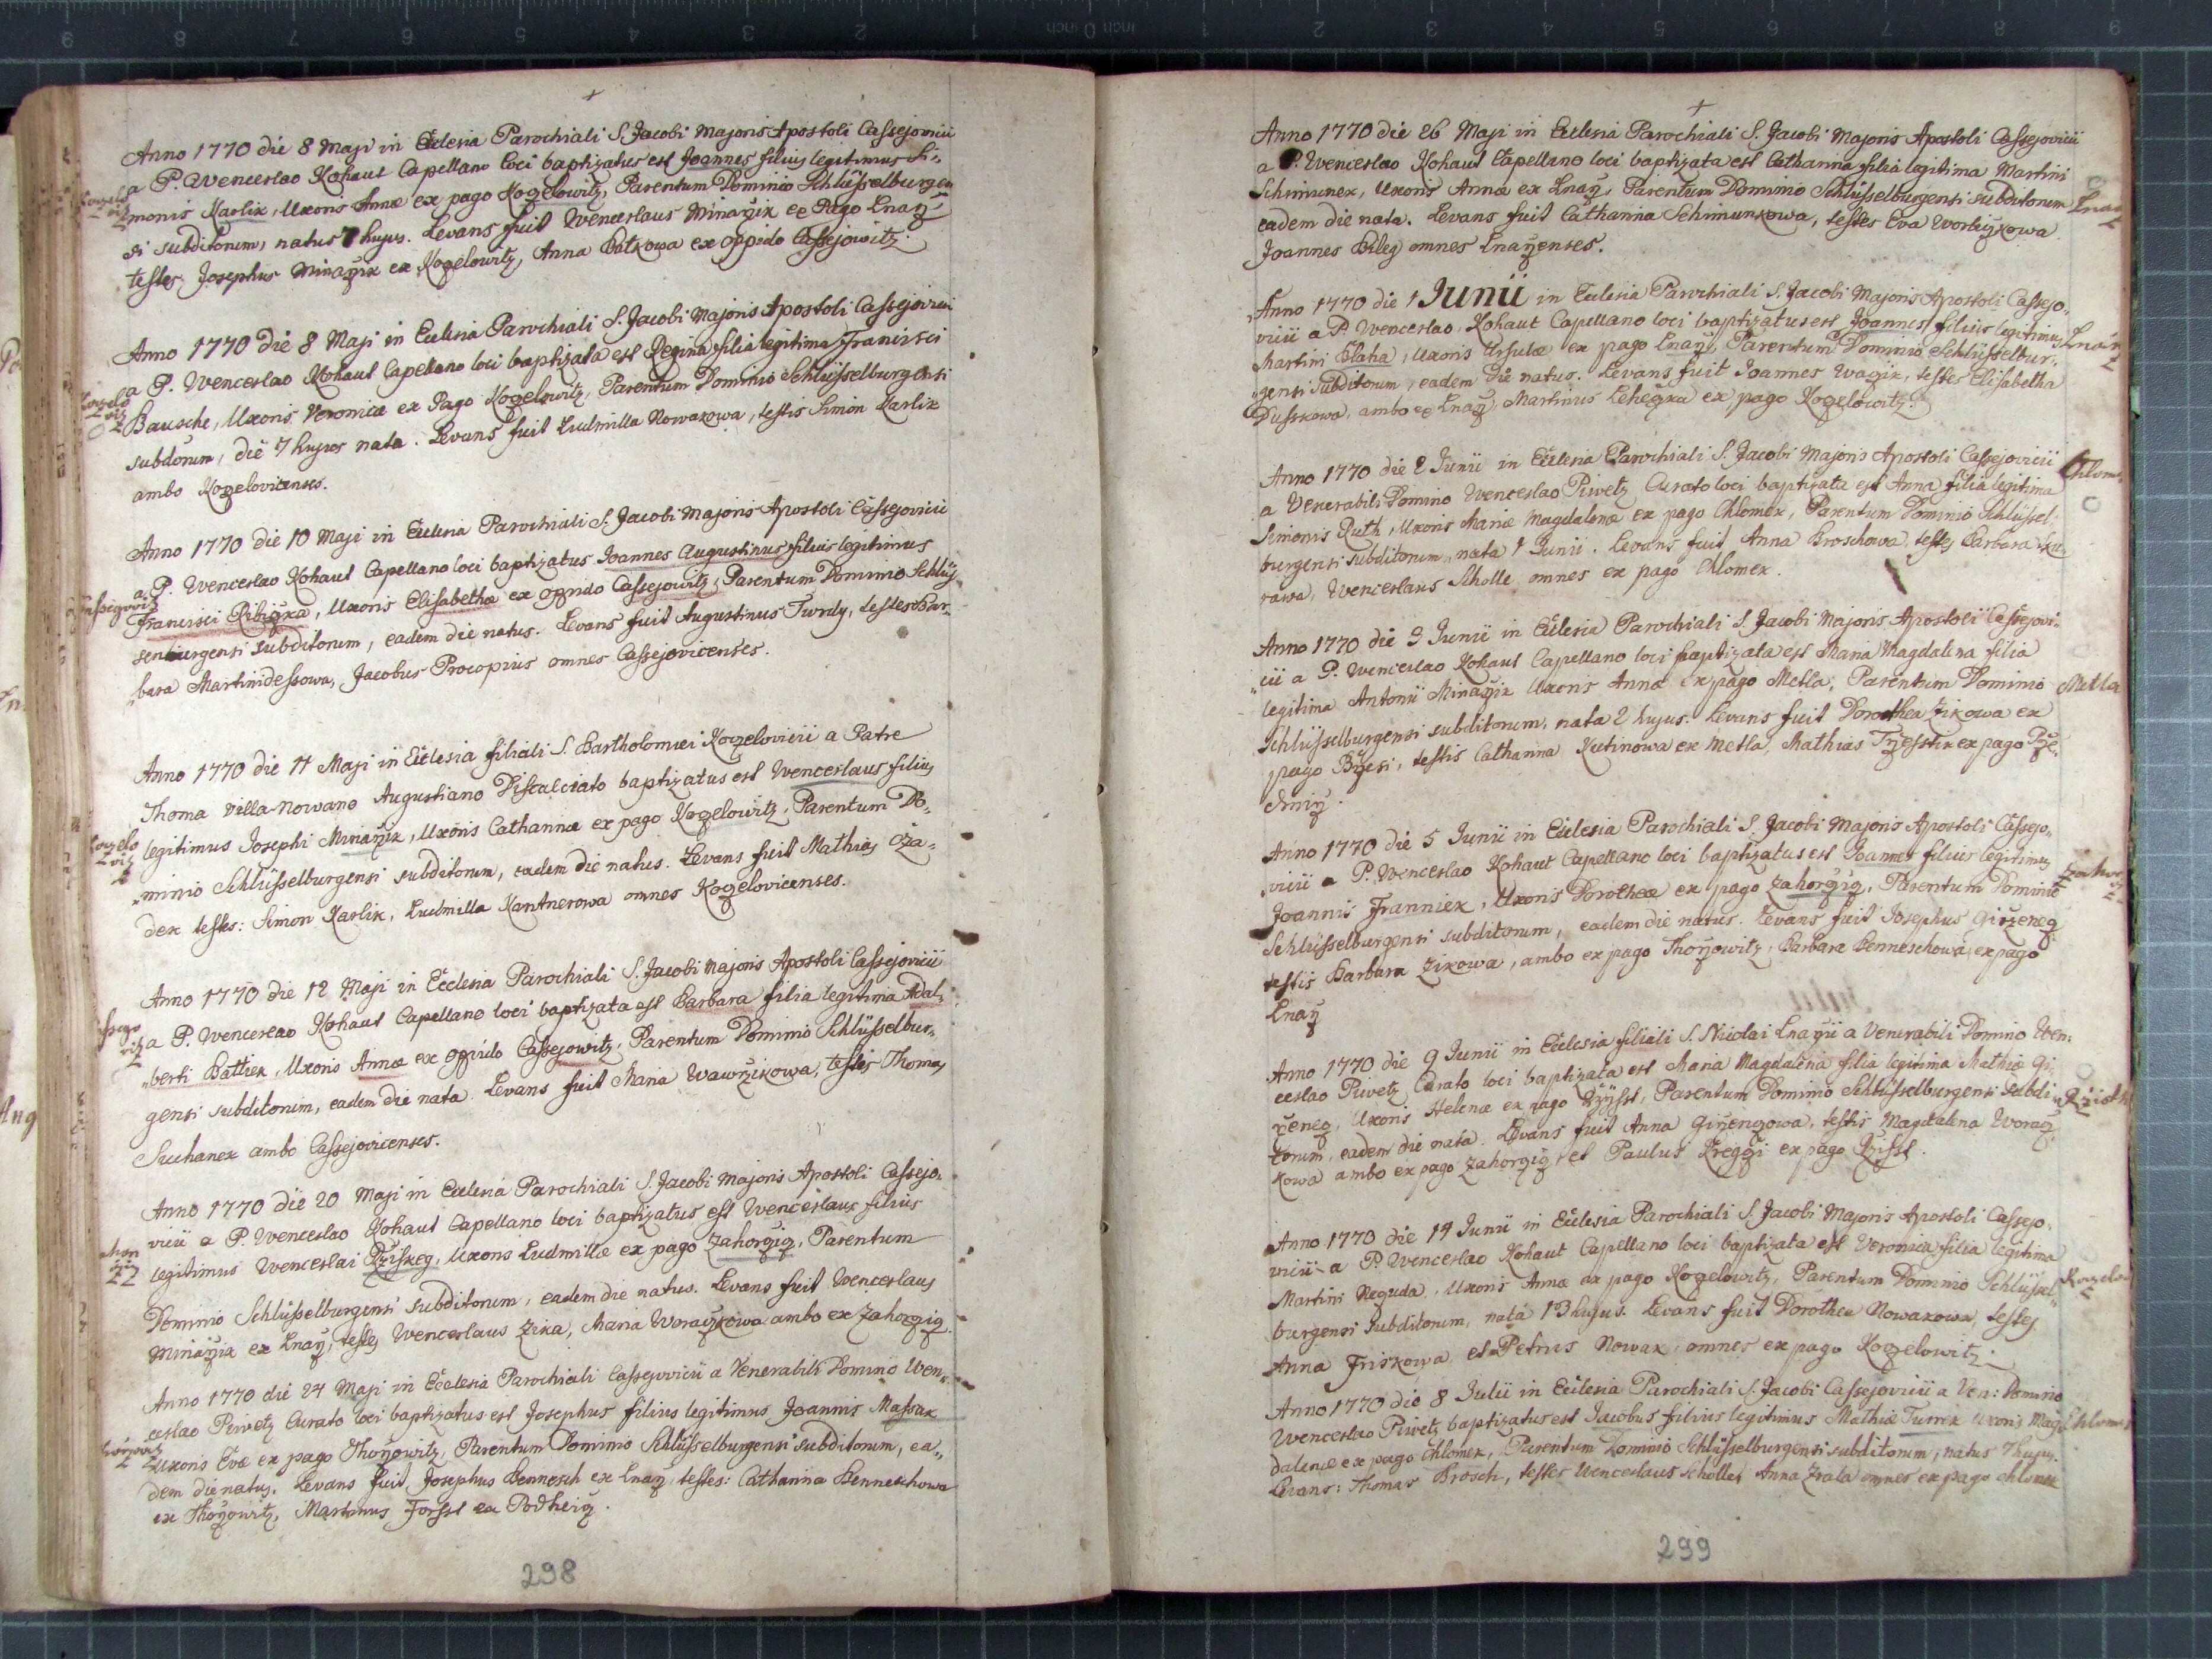 Anno 1770 die 8 Maji in Ecclesia Parochiali S. Jacobi Majoris Apostoli Cassejovicii
a P. Wenceslao Kohaut Capellano loci baptizatus est Joannes filius legitimus Si„
monis Karlik, Uxoris Annæ ex pago Kozelowitz, Parentum Dominio Schlüsselburgen
si subditorum, natus 7 hujus. Levans fuit Wenceslaus Minarzik ex Pago Lnarz
testes, Josephus Minarzik ex Kozelowitz, Anna Batkowa ex oppido Cassejowitz.
Anno 1770 die 8 Maji in Ecclesia Parochiali S. Jacobi Majoris Apostoli Cassejovicii
a P. Wenceslao Kohaut Capellano loci baptizata est Regina filia legitima Francisci
Bausche, Uxoris Veronicæ ex Pago Kozelowitz, Parentum Dominio Schlüsselburgensi
subdorum, die 7 hujus nata. Levans fuit Ludmilla Nowakowa, testis Simon Karlik
ambo Kozelovicenses.
Anno 1770 die 10 Maji in Ecclesia Parochiali S. Jacobi Majoris Apostoli Cassejovicii
a P. Wenceslao Kohaut Capellano loci baptizatus Joannes Augustinus filius legitimus
Cassegovitz
Francisci Ribiczka, Uxoris Elisabethæ ex oppido Cassejowitz, Parentum Dominio Schlüs
senburgensi subditorum, eadem die natus. Levans fuit Augustinus Twrdy, testes Bar„
„bara Martinidessowa, Jacobus Procopius omnes Cassejovicenses.
Anno 1770 die 11 Maji in Ecclesia filiali S. Bartholomei Kozelovicii a Patre
Thoma Villa-Nowano Augustiano Discalceato baptizatus est Wenceslaus filius
legitimus Josephi Minarzik, Uxoris Catharinæ ex pago Kozelowitz, Parentum Do„
„minio Schlüsselburgensi subditorum, eadem die natus. Levans fuit Mathias Oża„
dek testes: Simon Karlik, Ludmilla Kantnerowa omnes Kozelovicenses.
Anno 1770 die 12 Maji in Ecclesia Parochiali S. Jacobi Majoris Apostoli Cassejovicii
a P. Wenceslao Kohaut Capellano loci baptizata est Barbara filia legitima Adal„
„berti Bathek, Uxoris Annæ ex oppido Cassejowitz, Parentum Dominio Schlüsselbur„
gensi subditorum, eadem die nata. Levans fuit Maria Wawrzikowa, testis Thomas
Suchanek ambo Cassejovicenses.
Anno 1770 die 20 Maji in Ecclesia Parochiali S. Jacobi Majoris Apostoli Cassejo„
vicii a P. Wenceslao Kohaut Capellano loci baptizatus est Wenceslaus filius
legitimus Wenceslai Rziskeg, Uxoris Ludmillæ ex pago Zahorgig, Parentum
Dominio Schlüsselburgensi subditorum, eadem die natus. Levans fuit Wenceslaus
Minarzik ex Lnarz, testes Wenceslaus Zika, Maria Woraczkowa ambo ex Zahorgig.
Anno 1770 die 24 Maji in Ecclesia Parochiali Cassejovicii a Venerabili Domino Wen„
ceslao Piwetz Curato loci baptizatus est Josephus filius legitimus Joannis Massak
Uxoris Evæ ex pago Thorzowitz, Parentum Dominio Schlüsselburgensi subditorum, ea„
dem die natus. Levans fuit Josephus Bennesch ex Lnarz, testes: Catharina Benneschowa
ex Thorzowitz, Martinus Forsst ex Podheig.
298
Anno 1770 die 26 Maji in Ecclesia Parochiali S. Jacobi Majoris Apostoli Cassejovicii
a P. Wenceslao Kohaut Capellano loci baptizata est Catharina filia legitima Martini
Schmunek, Uxoris Annæ ex Lnarz, Parentum Dominio Schlüsselburgensi subditorum
eadem die nata. Levans fuit Catharina Schmunkowa, testes Eva
Joannes Bileg omnes Lnarzenses.
Anno 1770 die 1 Junii in Ecclesia Parochiali S. Jacobi Majoris Apostoli Cassejo„
vicii a P. Wenceslao Kohaut Capellano loci baptizatus est Joannes filius legitimus
Martini Blaha, Uxoris Ursulæ ex pago Lnarz, Parentum Dominio Schlüsselbur„
„gensi Subditorum, eadem die natus. Levans fuit Joannes Wazik, testes Elisabetha
Dusskowa, ambo ex Lnarz, Martinus Leheczka ex pago Kozelowitz.
Anno 1770 die 2 Junii in Ecclesia Parochiali S. Jacobi Majoris Apostoli Cassejovicii
a Venerabili Domino Wenceslao Piwetz Curato loci baptizata est Anna filia legitima
Simonis Ruth, Uxoris Mariæ Magdalenæ ex pago Chlomek, Parentum Dominio Schlüssel
burgensi subditorum, nata 1 Junii. Levans fuit Anna Broschowa, testes Barbara
Wenceslaus Scholle omnes ex pago Chlomek.
Anno 1770 die 3 Junii in Ecclesia Parochiali S. Jacobi Majoris Apostoli Cassejovi„
„cii a P. Wenceslao Kohaut Capellano loci baptizata est Maria Magdalena filia
legitima Antonii Minarzik Uxoris Annæ ex pago Metla, Parentum Dominio
Metla
Schlüsselburgensi subditorum, nata 2 hujus. Levans fuit Dorothea Zikowa ex
pago Brzesi, testis Catharina Kutinowa ex Metla, Mathias Trzesstik ex pago
Anno 1770 die 5 Junii in Ecclesia Parochiali S. Jacobi Majoris Apostoli Cassejo„
„vicii a P. Wenceslao Kohaut Capellano loci baptizatus est Joannes filius legitimus
Joannis Franniek, Uxoris Dorotheæ ex pago Zahorgig, Parentum Dominio
Schlüsselburgensi subditorum, eadem die natus. Levans fuit Josephus Girzeneg
testis Barbara Zikowa, ambo ex pago Thorzowitz, Barbara Benneschowa, ex pago
Lnarz
Anno 1770 die 9 Junii in Ecclesia filiali S. Nicolai Lnarzii a Venerabili Domino Wen„
ceslao Piwetz Curato loci baptizata est Maria Magdalena filia legitima Mathiæ Gi„
rzeneg, Uxoris Helenæ ex pago Rzisst, Parentum Dominio Schlüsselburgensi Subdi„
torum, eadem die nata. Levans fuit Anna Girzengowa, testis Magdalena Woracz
kowa ambo ex pago Zahorgig, et Paulus Kregczi ex pago Rzisst.
Anno 1770 die 14 Junii in Ecclesia Parochiali S. Jacobi Majoris Apostoli Cassejo„
vicii a P. Wenceslao Kohaut Capellano loci baptizata est Veronica filia legitima
Martini Neguda, Uxoris Annæ ex pago Kozelowitz, Parentum Dominio Schlüssel„
burgensi Subditorum, nata 13 hujus. Levans fuit Dorothea Nowakowa, testes
Anna Friskowa et Petrus Nowak, omnes ex pago Kozelowitz.
Anno 1770 die 8 Julii in Ecclesia Parochiali S. Jacobi Cassejovicii a Ven: Domino
Wenceslao Piwetz baptizatus est Jacobus filius legitimus Mathiæ Turek Uxoris Mag„
dalenæ ex pago Chlomek, Parentum Dominio Schlüsselburgensi subditorum, natus 7 hujus.
Levans: Thomas Brosch, testes Wenceslaus Scholle, Anna Zrala omnes ex pago Chlomek
299